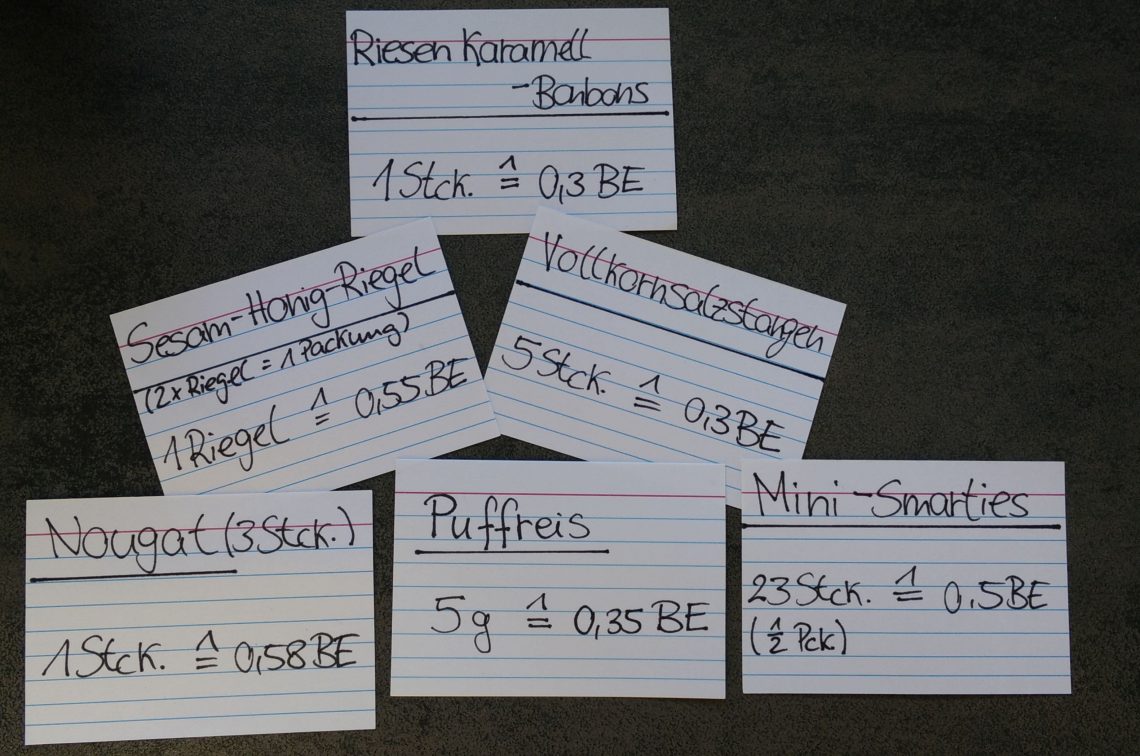 Riesen Karamell
-Bonbons
1 Stck. ≙ 0,3 BE
Sesam-Honig-Riegel
(2x Riegel = 1 Packung)
1 Riegel ≙ 0,55 BE
Vollkornsalzstangen
5 Stck. ≙ 0,3 BE
Nougat (3 Stck.)
1 Stck. ≙ 0,58 BE
Puffreis
5 g ≙ 0,35 BE
Mini-Smarties
23 Stck. ≙ 0,5 BE
(1/2 Pck.)